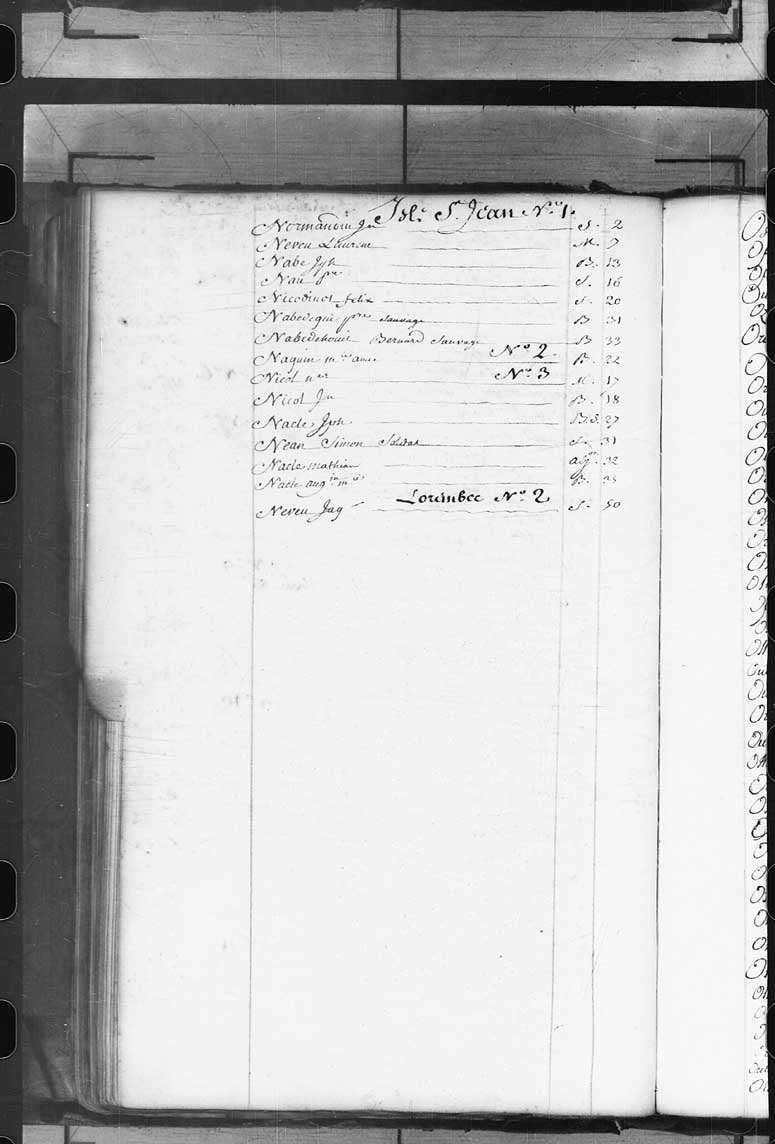 Isle St Jean No 1.
Normandin Jn S. 2
Neveu Laurent M. 7
Nabe Jph B. 13
Nau pre S. 16
Nicodinot felix S. 20
Nabedequi pre sauvage B 31
Nabedehouit Bernard Sauvage B 33
No 2.
Naquin mie anne B. 22
No 3
Nicol M. 17
Nicol Jn B. 18
Nacle Jph B.S. 27
Nean Simon Soldat S. 31
Nacle mathieu 32
Nacle aug in B.
Lorembec No 2
Neveu Jaq S. 50